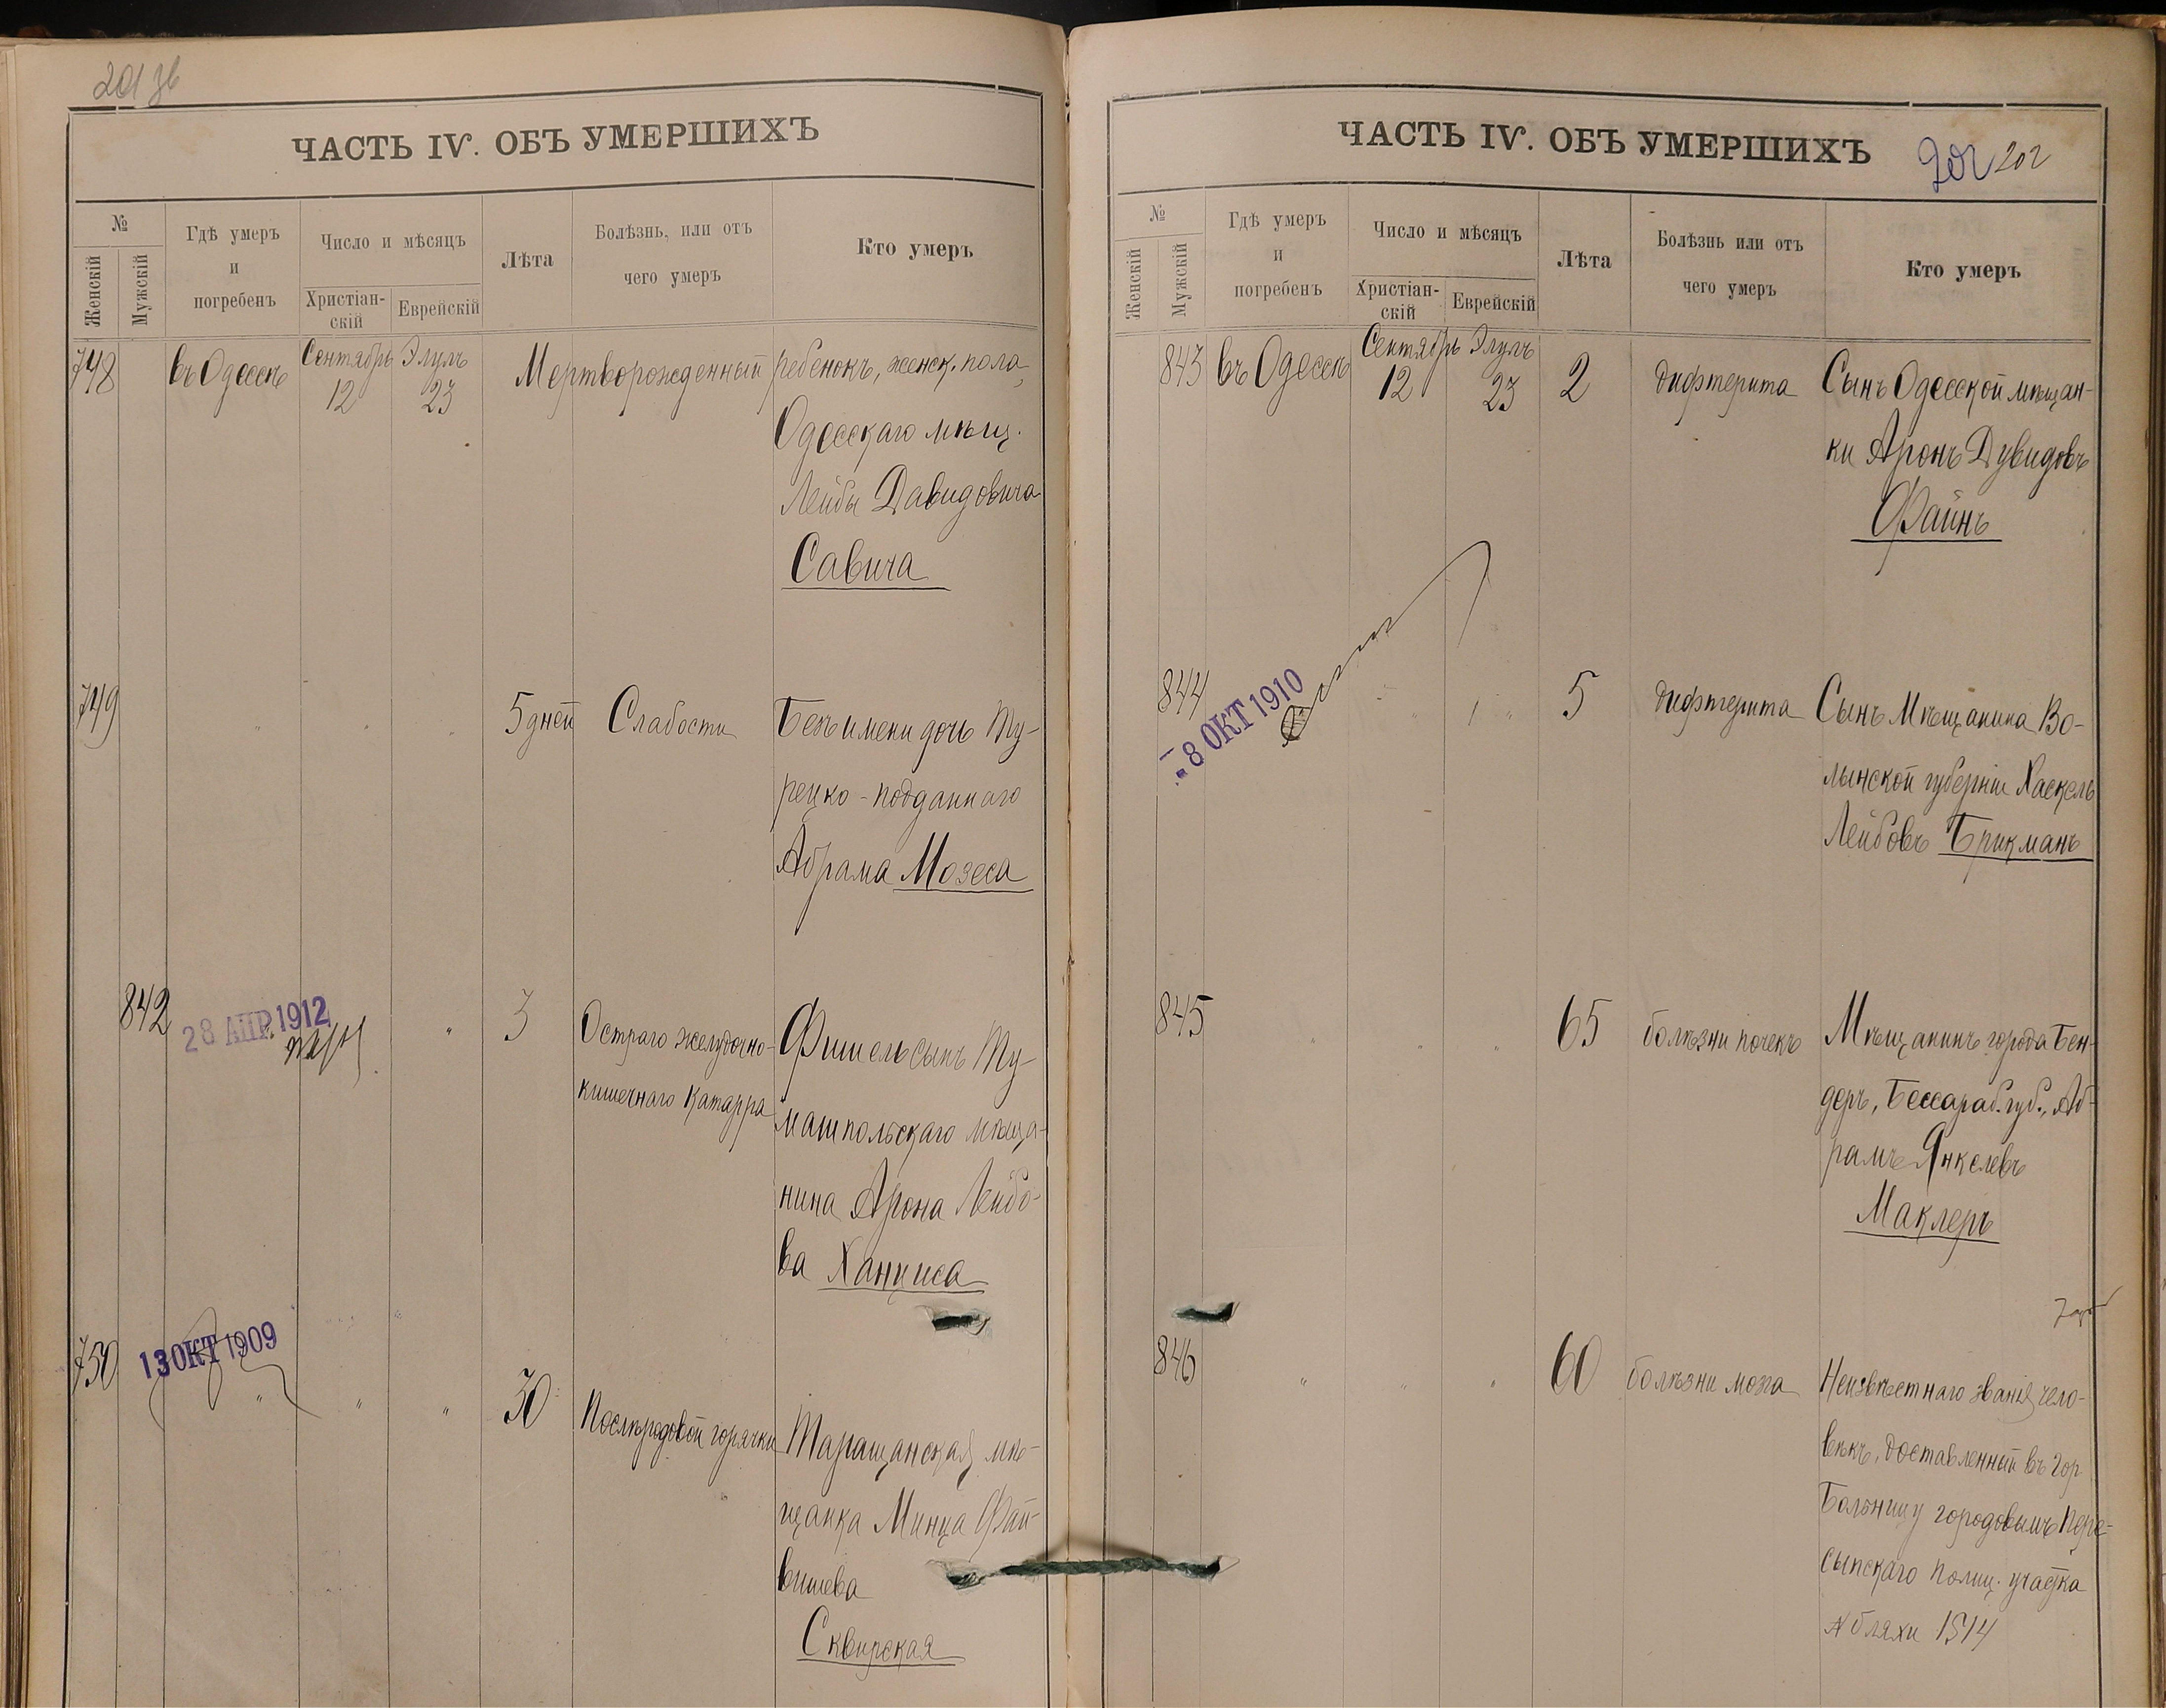 201 зв
ЧАСТЬ IV. ОБЪ УМЕРШИХЪ
№
Женскій
Мужскій
Гдѣ умеръ
и
погребенъ
Число и мѣсяцъ
Христіан-
скій
Еврейскій
Лѣта
Болѣзнь, или отъ
чего умеръ
Кто умеръ
748 въ Одессѣ Сентябрь 12 Элулъ 23 Мертворожденный ребенокъ, женск. пола,
Одесскаго мѣщ.
Лейбы Давидовича
Савича
749 " " " 5 дней Слабости Безъ имени дочь Ту-
рецко-подданнаго
Абрама Мозеса
842 28 АПР. 1912 " 3 Остраго желудочно- Фишель сынъ Ту-
кишечнаго катарра машпольскаго мѣща-
нина Арона Лейбо-
ва Ханциса
750 13 ОКТ 1909 " " " 30 Послѣродовой горячки Таращанская мѣ-
щанка Минца Фай-
вишева
Сквирская
ЧАСТЬ IV. ОБЪ УМЕРШИХЪ
202 202
№
Женскій
Мужскій
Гдѣ умеръ
и
погребенъ
Число и мѣсяцъ
Христіан-
скій
Еврейскій
Лѣта
Болѣзнь или отъ
чего умеръ
Кто умеръ
843 въ Одессѣ Сентябрь 12 Элулъ 23 2 дифтерита Сынъ Одесской мѣщан-
ки Аронъ Дувидовъ
Файнъ
844 - 8 ОКТ 1910 " " 5 дифтерита Сынъ Мѣщанина Во-
лынской губерніи Хаскель
Лейбовъ Брикманъ
845 " " " 65 болѣзни почекъ Мѣщанинъ города Бен-
деръ, Бессараб. губ., Аб-
рамъ Янкелевъ
Маклеръ
846 " " " 60 болѣзни мозга Неизвѣстнаго званія чело-
вѣкъ, доставленный въ Гор
Больницу городовымъ Пере-
сыпскаго полиц. участка
№ бляхи 1514